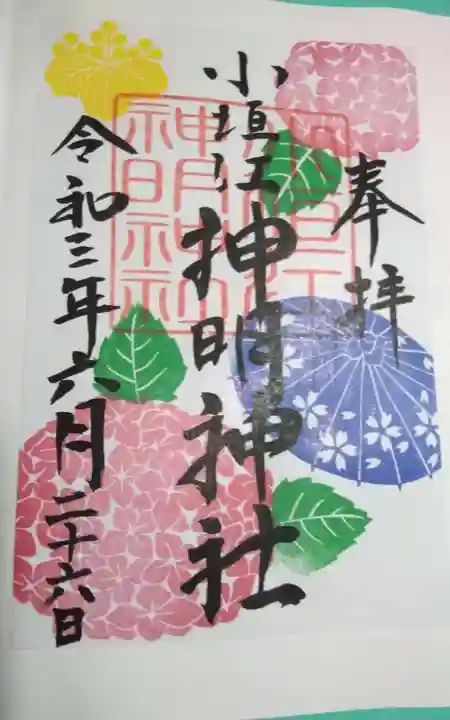 奉拝
小垣江神明神社
令和三年六月二十六日
小垣江
神明神社